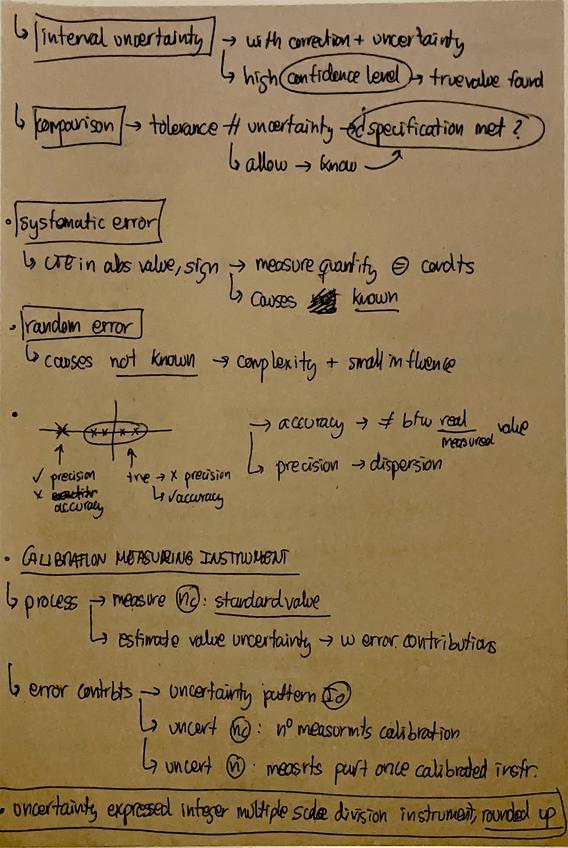 ↳ interval uncertainty → with correction + uncertainty
↳ high confidence level → true value found
↳ comparison → tolerance # uncertainty → specification met ?
↳ allow → know
• systematic error
↳ CTE in abs value, sign → measure quantity ⊜ condts
↳ causes known
• random error
↳ causes not known → complexity + small influence
→ accuracy → ≠ btw real measured value
↳ precision → dispersion
✓ precision
x accuracy
→ x precision
↳ ✓accuracy
• CALIBRATION MEASURING INSTRUMENT
↳ process → measure nc : standard value
↳ estimate value uncertainty → w error contributions
↳ error contrbts → uncertainty pattern Io
↳ uncert nc : nº measurmts calibration
↳ uncert n : measrts part once calibrated instr.
• uncertainty expressed integer multiple scale division instrument, rounded up